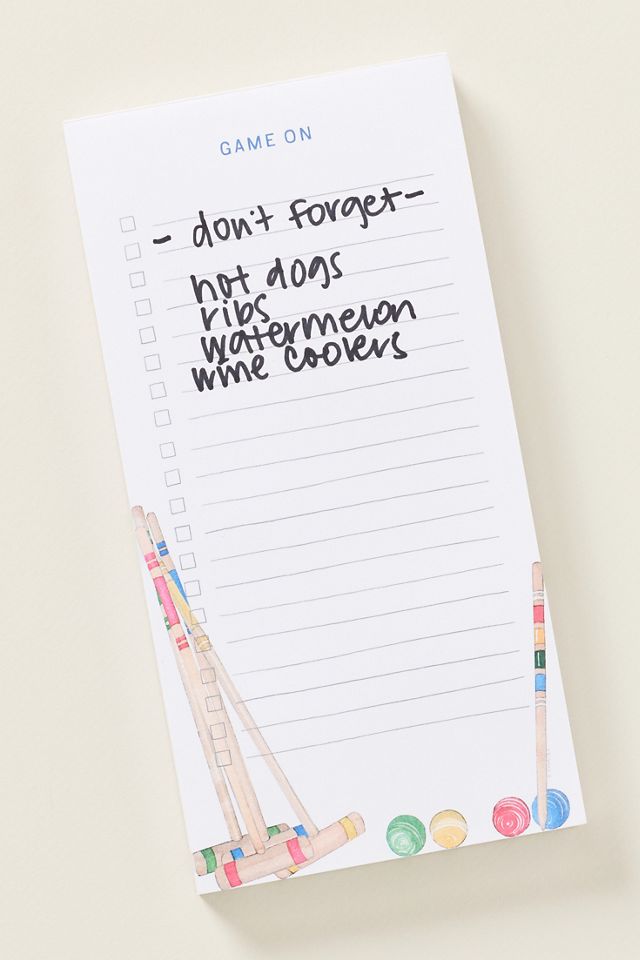 GAME ON
- don't forget -
hot dogs
ribs
watermelon
wine coolers